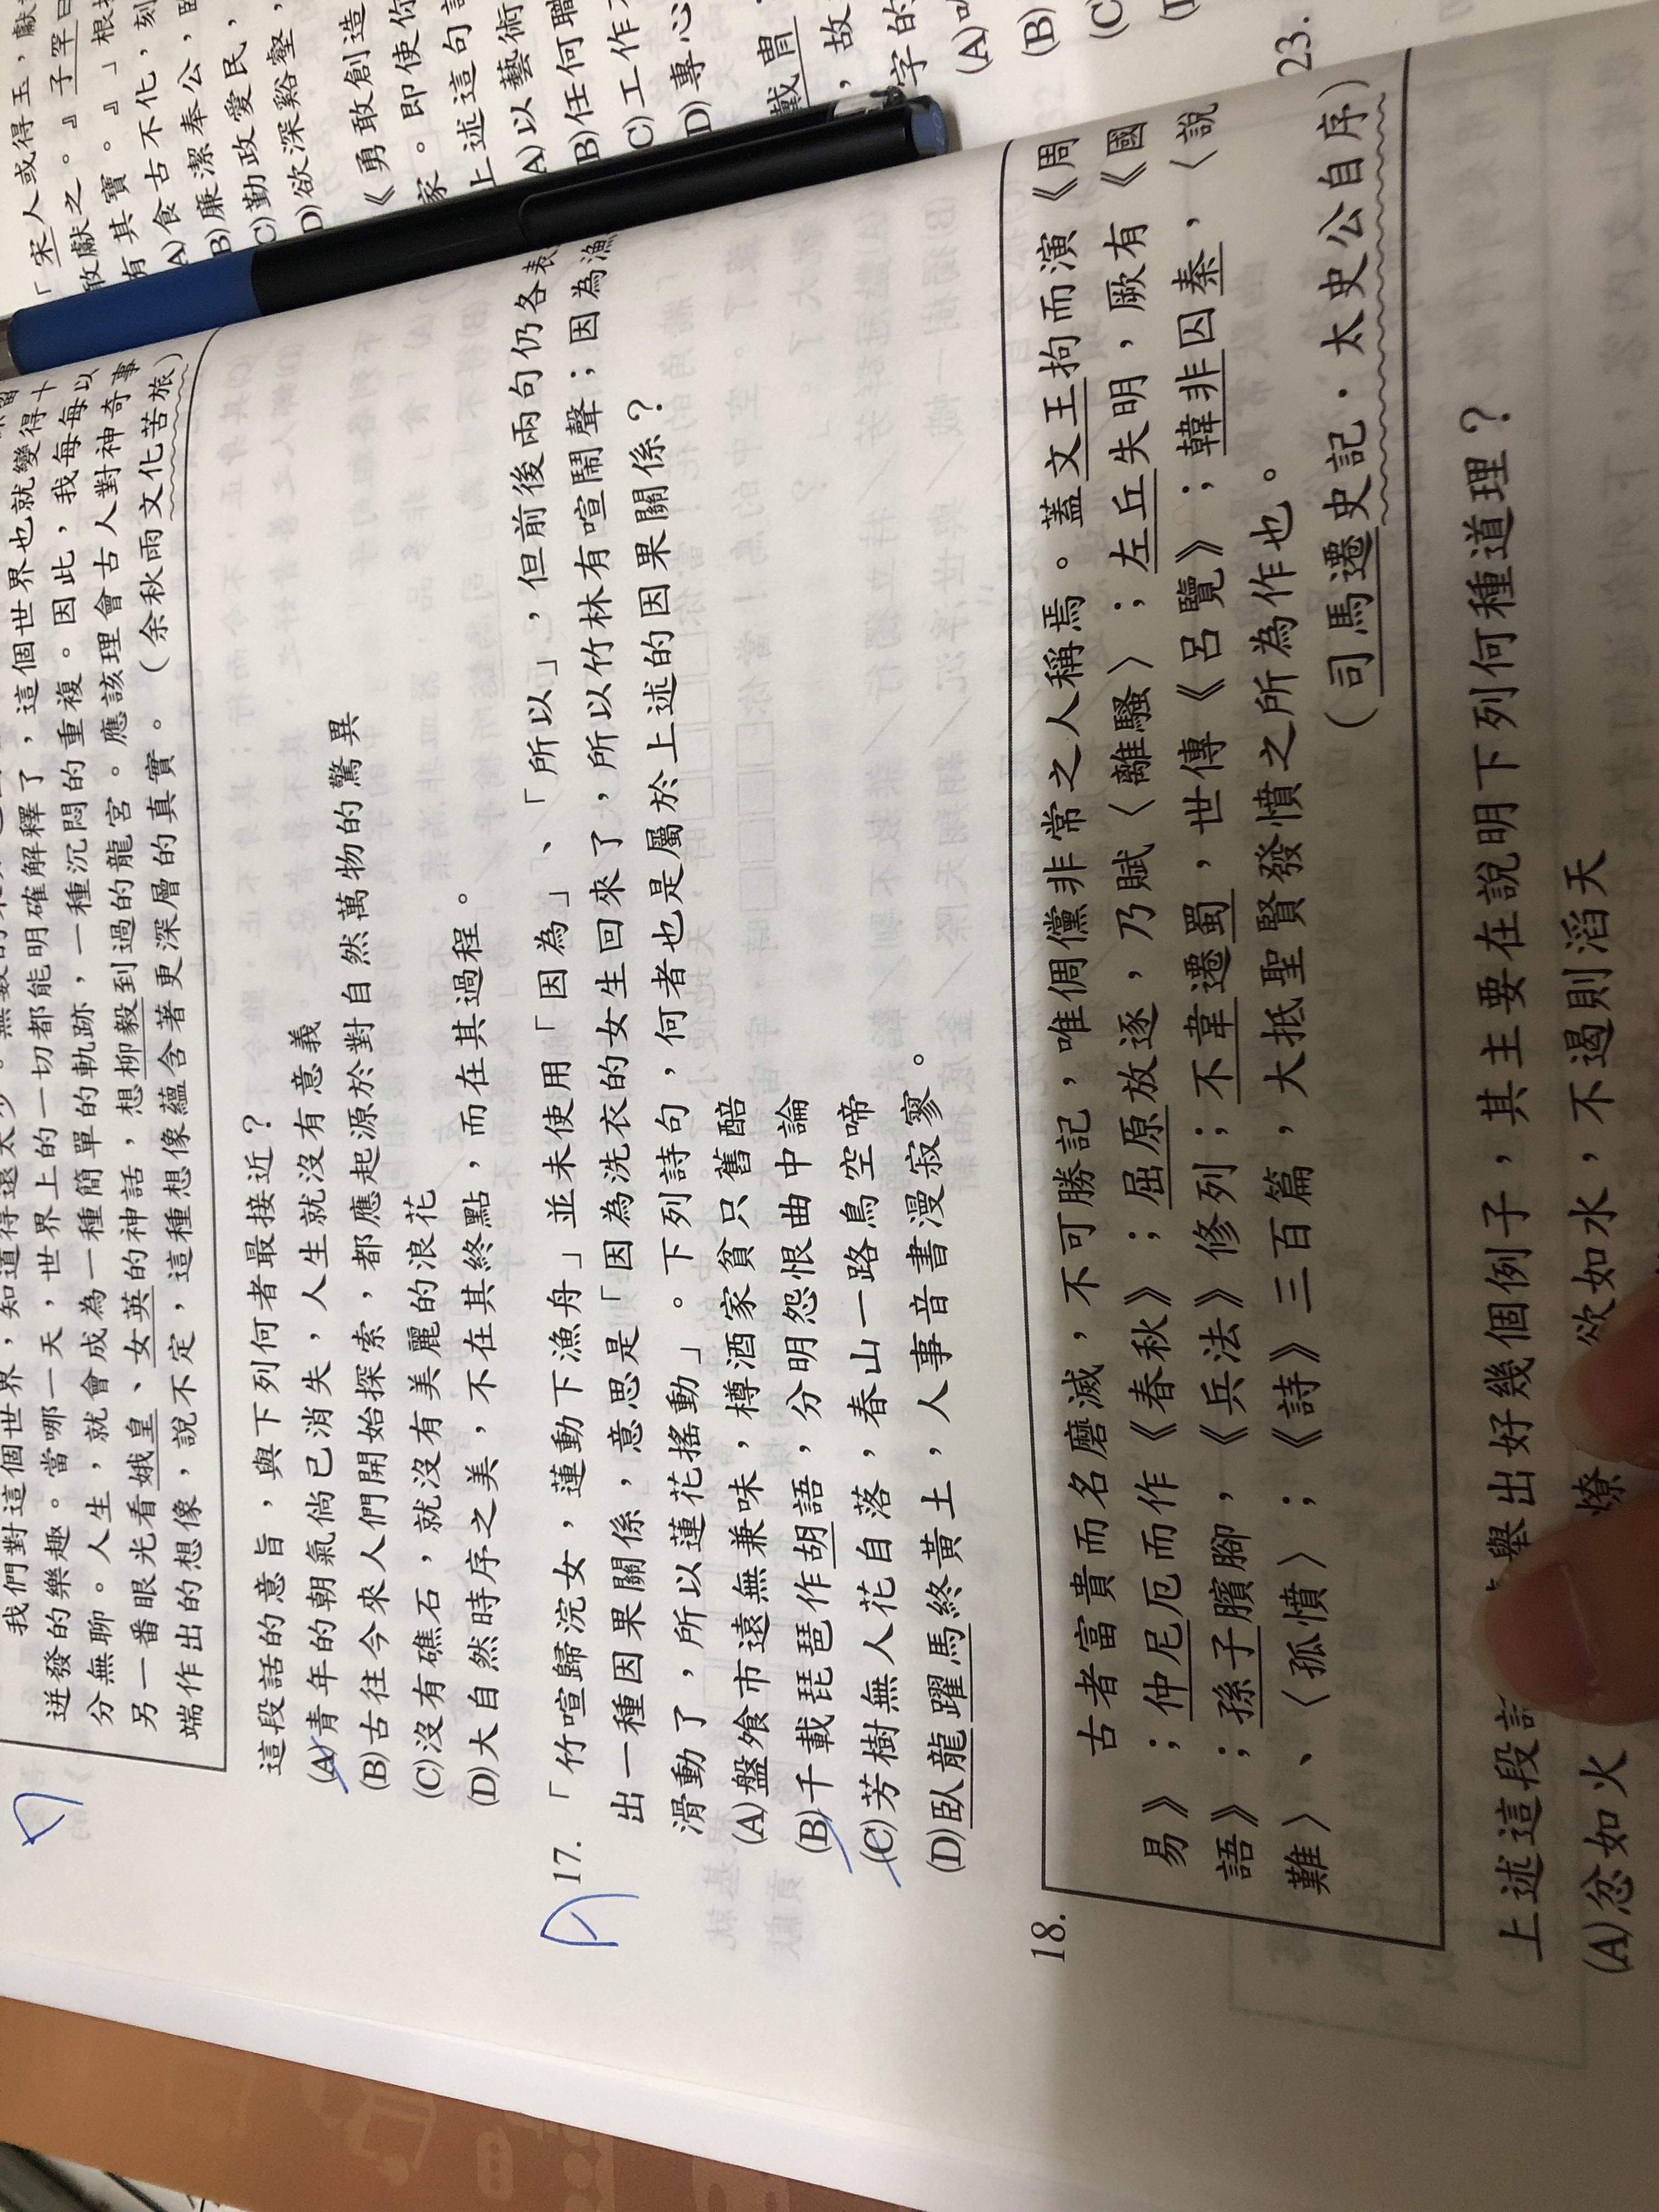 我們對這個世界，知道得還太少。無數的
迸發的樂趣。當哪一天，世界上的一切都能明確解釋了，這個世界也就變得十
分無聊。人生，就會成為一種簡單的軌跡，一種沉悶的重複。因此，我每每以
另一番眼光看娥皇、女英的神話，想柳毅到過的龍宮。應該理會古人對神奇事
端作出的想像，說不定，這種想像蘊含著更深層的真實。（余秋雨文化苦旅）
這段話的意旨，與下列何者最接近？
(A)青年的朝氣倘已消失，人生就沒有意義
(B)古往今來人們開始探索，都應起源於對自然萬物的驚異
(C)沒有礁石，就沒有美麗的浪花
(D)大自然時序之美，不在其終點，而在其過程。
17.「竹喧歸浣女，蓮動下漁舟」並未使用「因為」、「所以」，但前後兩句仍各表
出一種因果關係，意思是「因為洗衣的女生回來了，所以竹林有喧鬧聲；因為漁
滑動了，所以蓮花搖動」。下列詩句，何者也是屬於上述的因果關係？
(A)盤飧市遠無兼味，樽酒家貧只舊醅
(B)千載琵琶作胡語，分明怨恨曲中論
(C)芳樹無人花自落，春山一路鳥空啼
(D)臥龍躍馬終黃土，人事音書漫寂寥。
18.
古者富貴而名磨滅，不可勝記，唯倜儻非常之人稱焉。蓋文王拘而演《周
易》；仲尼厄而作《春秋》；屈原放逐，乃賦〈離騷〉；左丘失明，厥有《國
語》；孫子臏腳，《兵法》修列；不韋遷蜀，世傳《呂覽》；韓非囚秦，〈說
難〉、〈孤憤〉；《詩》三百篇，大抵聖賢發憤之所為作也。
（司馬遷史記．太史公自序）
上述這段 舉出好幾個例子，其主要在說明下列何種道理？
(A)忿如火 燎 欲如水，不遏則滔天
「宋人或得玉，獻
敢獻之。』子罕曰
有其寶。』」根
(A)食古不化，刻
(B)廉潔奉公，
(C)勤政愛民，
(D)欲深谿壑，
《勇敢創造
家。即使你
上述這句
(A)以藝術
(B)任何職
(C)工作
(D)專心
戴冑
，故
字的
(A)
(B)
(C)
23.